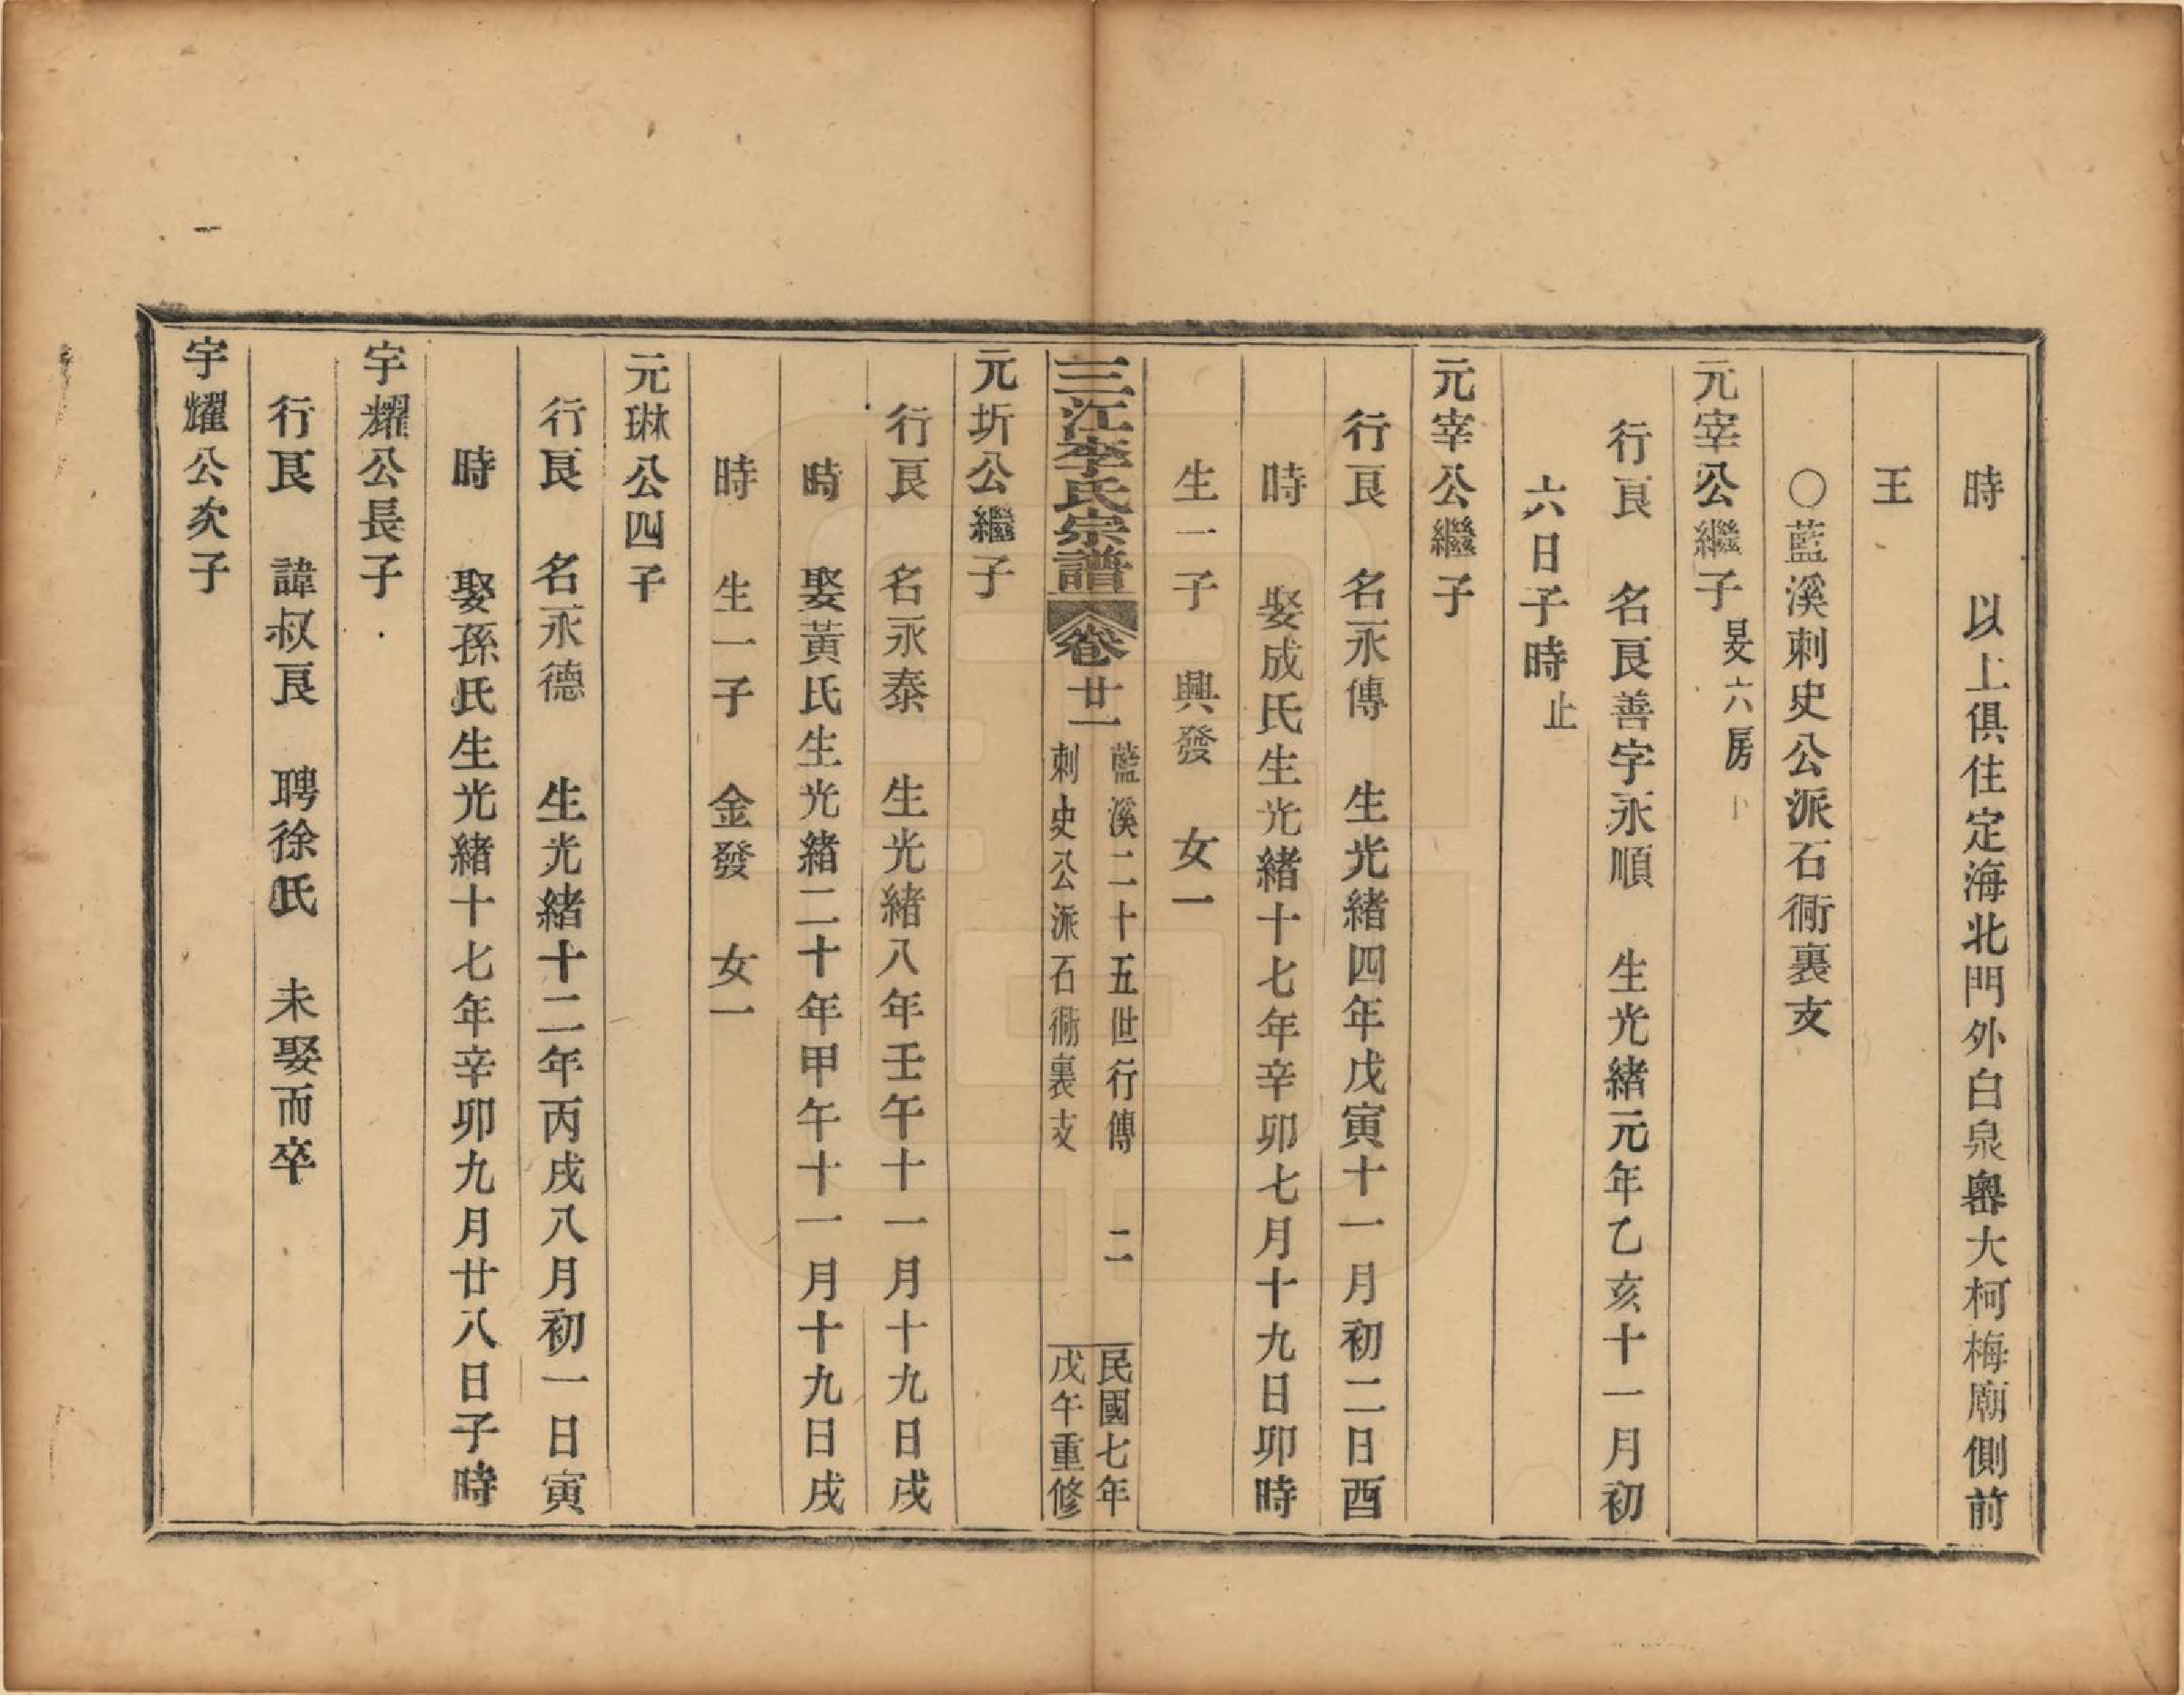 時　以上俱住定海北門外白泉嶴大柯梅廟側前
王
○藍溪刺史公派石衕裏支
元宰公繼子 旻六房
行良　名良善字永順　生光緒元年乙亥十一月初
六日子時止
元宰公繼子
行良　名永傳　生光緒四年戊寅十一月初二日酉
時　娶成氏生光緒十七年辛卯七月十九日卯時
生一子　興發　女一
三江李氏宗譜 卷廿一 藍溪二十五世行傳 二 民國七年
刺史公派石衕裏支 戊午重修
元圻公繼子
行良　名永泰　生光緒八年壬午十一月十九日戌
時　娶黃氏生光緒二十年甲午十一月十九日戌
時　生一子　金發　女一
元琳公四子
行良　名永德　生光緒十二年丙戌八月初一日寅
時　娶孫氏生光緒十七年辛卯九月廿八日子時
宇耀公長子
行良　諱叔良　聘徐氏　未娶而卒
宇耀公次子